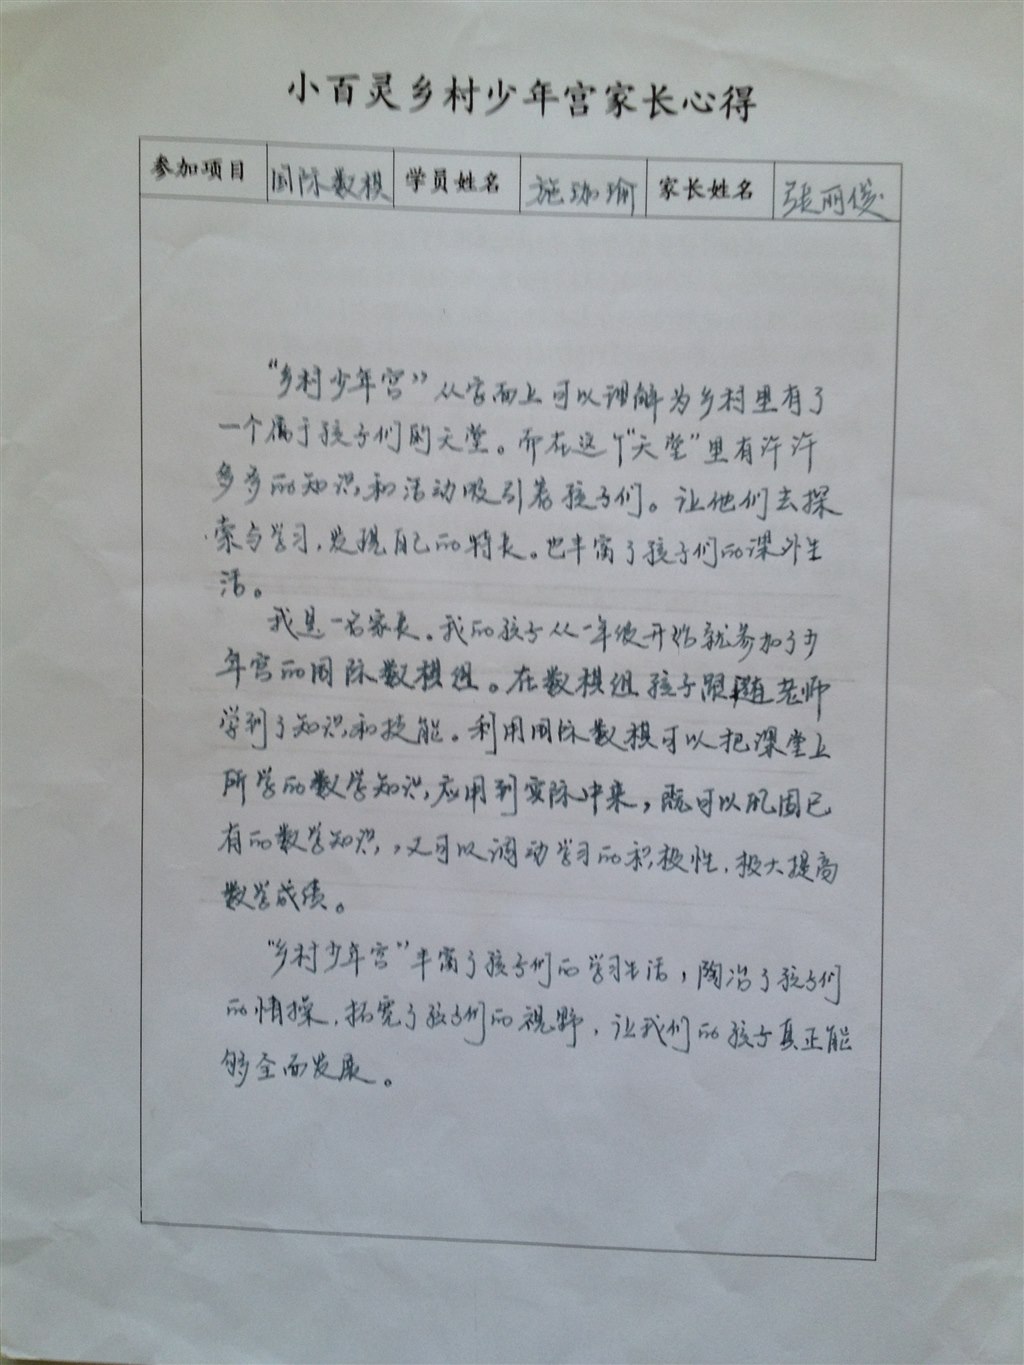 小百灵乡村少年宫家长心得
参加项目 国际数棋 学员姓名 施珈瑜 家长姓名 张丽俊
“乡村少年宫”从字面上可以理解为乡村里有了
一个属于孩子们的天堂。而在这个“天堂”里有许许
多多的知识和活动吸引着孩子们。让他们去探
索与学习,发现自己的特长。也丰富了孩子们的课外生
活。
我是一名家长。我的孩子从一年级开始就参加了少
年宫的国际数棋组。在数棋组孩子跟随老师
学到了知识和技能。利用国际数棋可以把课堂上
所学的数学知识,应用到实际中来,既可以巩固已
有的数学知识,又可以调动学习的积极性,极大提高
数学成绩。
“乡村少年宫”丰富了孩子们的学习生活,陶冶了孩子们
的情操,拓宽了孩子们的视野,让我们的孩子真正能
够全面发展。